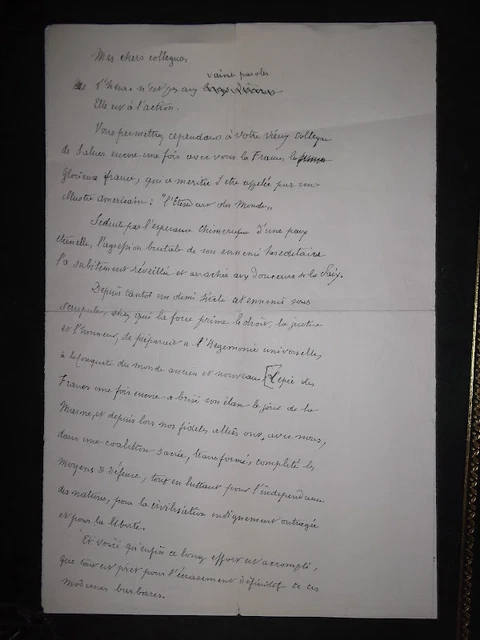 Mes chers collègues
vaines paroles
L'heure n'est pas aux
Elle est à l'action.
Vous permettrez cependant à votre vieux collègue
de saluer encore une fois avec vous la France, la
Glorieuse france, qui a méritée d'être appelée par un
illustre américain : "l' du Monde"
Séduit par l'espérance chimérique d'une paix
éternelle, l'agression brutale de son ennemi héréditaire
l'a subitement réveillée et arrachée aux douceurs de la Paix.
Depuis tantot un demi siècle cet ennemi sans
scrupules, chez qui la force prime le droit, la justice
et l'honneur, se préparait à l'Hégémonie universelle,
à la conquête du monde ancien et nouveau. [L'épée des
Francs une fois encore a brisé son élan le jour de la
Marne, et depuis lors nos fidèles alliés ont, avec nous,
dans une coalition sacrée, transformé, complété les
moyens de défense, tout en luttant pour l'indépendance
des nations, pour la civilisation indignement outragée
et pour la liberté.
Et voici qu'enfin ce long effort est accompli,
que tout est prêt pour l'écrasement définitif de ces
modernes barbares.